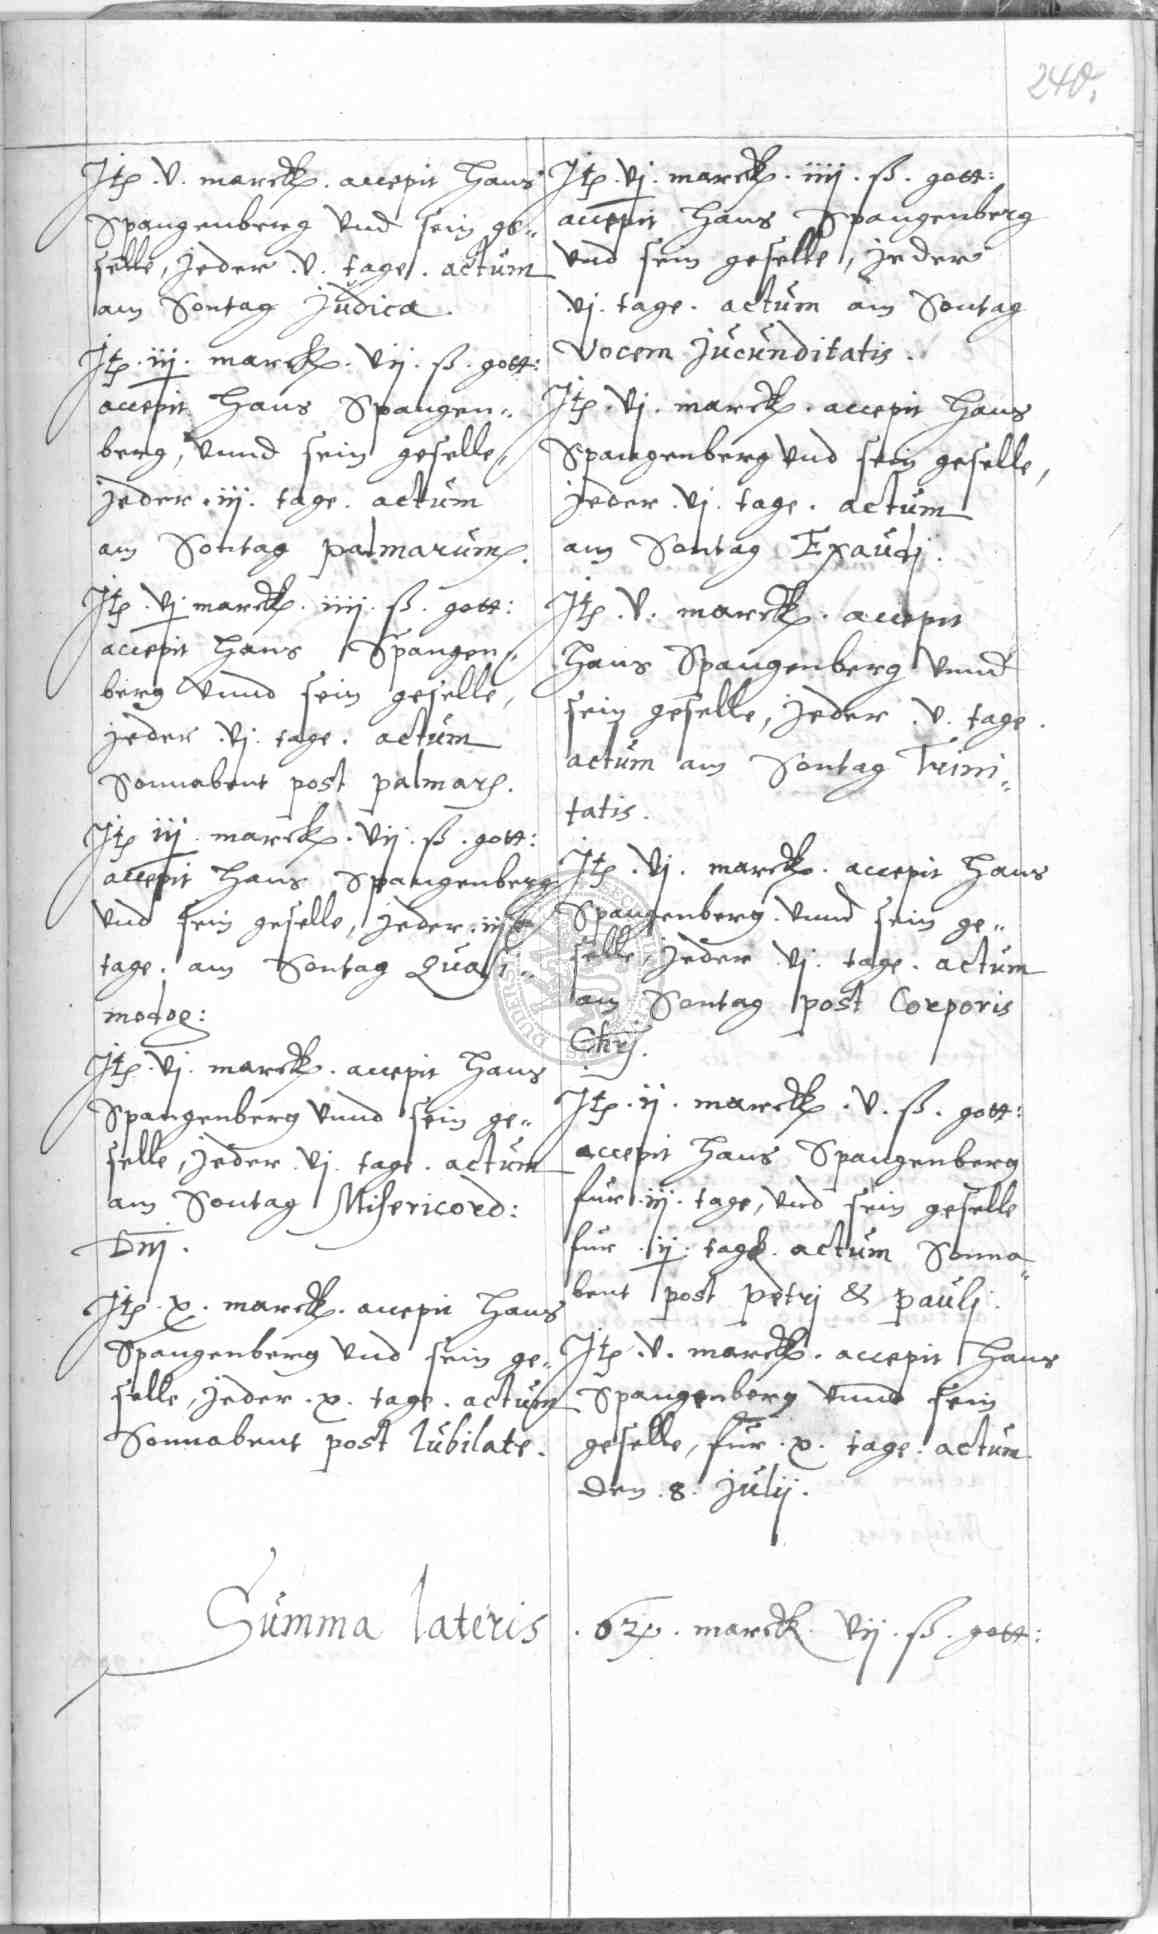 240.
Itē .v. marck. accepit Hans
Spangenberg vnd sein ge„
selle, jeder .v. tage. actum
am Sontag Judica.
Itē .iij. marck. vij. ß. gott:
accepit Hans Spangen„
berg, vnnd sein geselle,
jeder .iij. tage. actum
am Sontag palmarum.
Itē .vj. marck. iiij. ß. gott:
accepit Hans Spangen„
berg vnnd sein geselle,
jeder .vj. tage. actum
Sonnabent post palmarū.
Itē iij. marck. vij. ß. gott:
accepit Hans Spangenberg
vnd sein geselle, jeder
tage. am Sontag Quasi„
modog:
Itē .vj. marck. accepit Hans
Spangenberg vnnd sein ge„
selle, jeder .vj. tage. actum
am Sontag Misericord:
Dnj.
Itē .x. marck. accepit Hans
Spangenberg vnd sein ge„
selle, jeder .x. tage. actum
Sonnabent post Jubilate.
Itē .vj. marck. iiij. ß. gott:
accepit Hans Spangenberg
vnd sein geselle, jeder
.vj. tage. actum am Sontag
Vocem Jucunditatis.
Itē .vj. marck. accepit Hans
Spangenberg vnd sein geselle,
jeder .vj. tage. actum
am Sontag Exaudj.
Itē .v. marck. accepit
Hans Spangenberg vnnd
sein geselle, jeder .v. tage.
actum am Sontag Trini„
tatis.
Itē .vj. marck. accepit Hans
Spangenberg. vnnd sein ge„
selle, jeder .vj. tage. actum
am Sontag post Corporis
Chrj.
Itē .ij. marck. v. ß. gott:
accepit Hans Spangenberg
fur .iij. tage, vnd sein geselle
fur .ij. tage. actum Sonna„
bent post petrj & paulj.
Itē .v. marck. accepit Hans
Spangenberg vnnd sein
geselle, fur .x. tage. actum
den .8. Julij.
Summa lateris . marck vij. ß. gott: